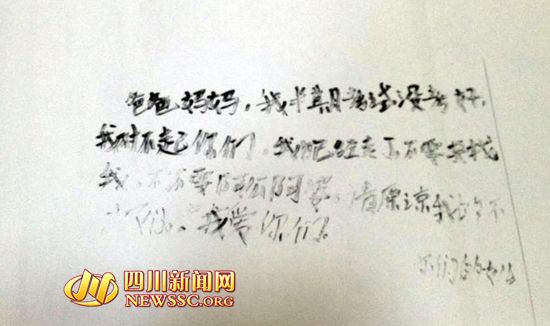 爸爸妈妈,我半期考试没考好,
我对不起你们,我已经走了不要来找
我,不要阿公阿婆,请原谅我的不
我 你们
你们的女儿
四川新闻网
NEWSSC.ORG